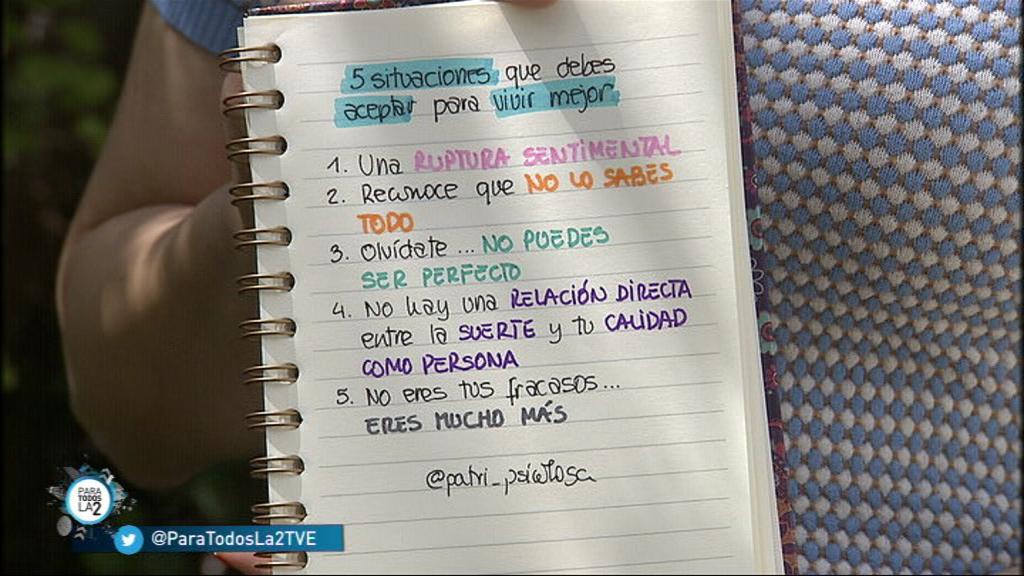 5 situaciones que debes
aceptar para vivir mejor
1. Una RUPTURA SENTIMENTAL
2. Reconoce que NO LO SABES
TODO
3. Olvídate ... NO PUEDES
SER PERFECTO
4. No hay una RELACIÓN DIRECTA
entre la SUERTE y tu CALIDAD
COMO PERSONA
5. No eres tus fracasos...
ERES MUCHO MÁS
@patri_psicologa
PARA
TODOS
LA2
@ParaTodosLa2TVE